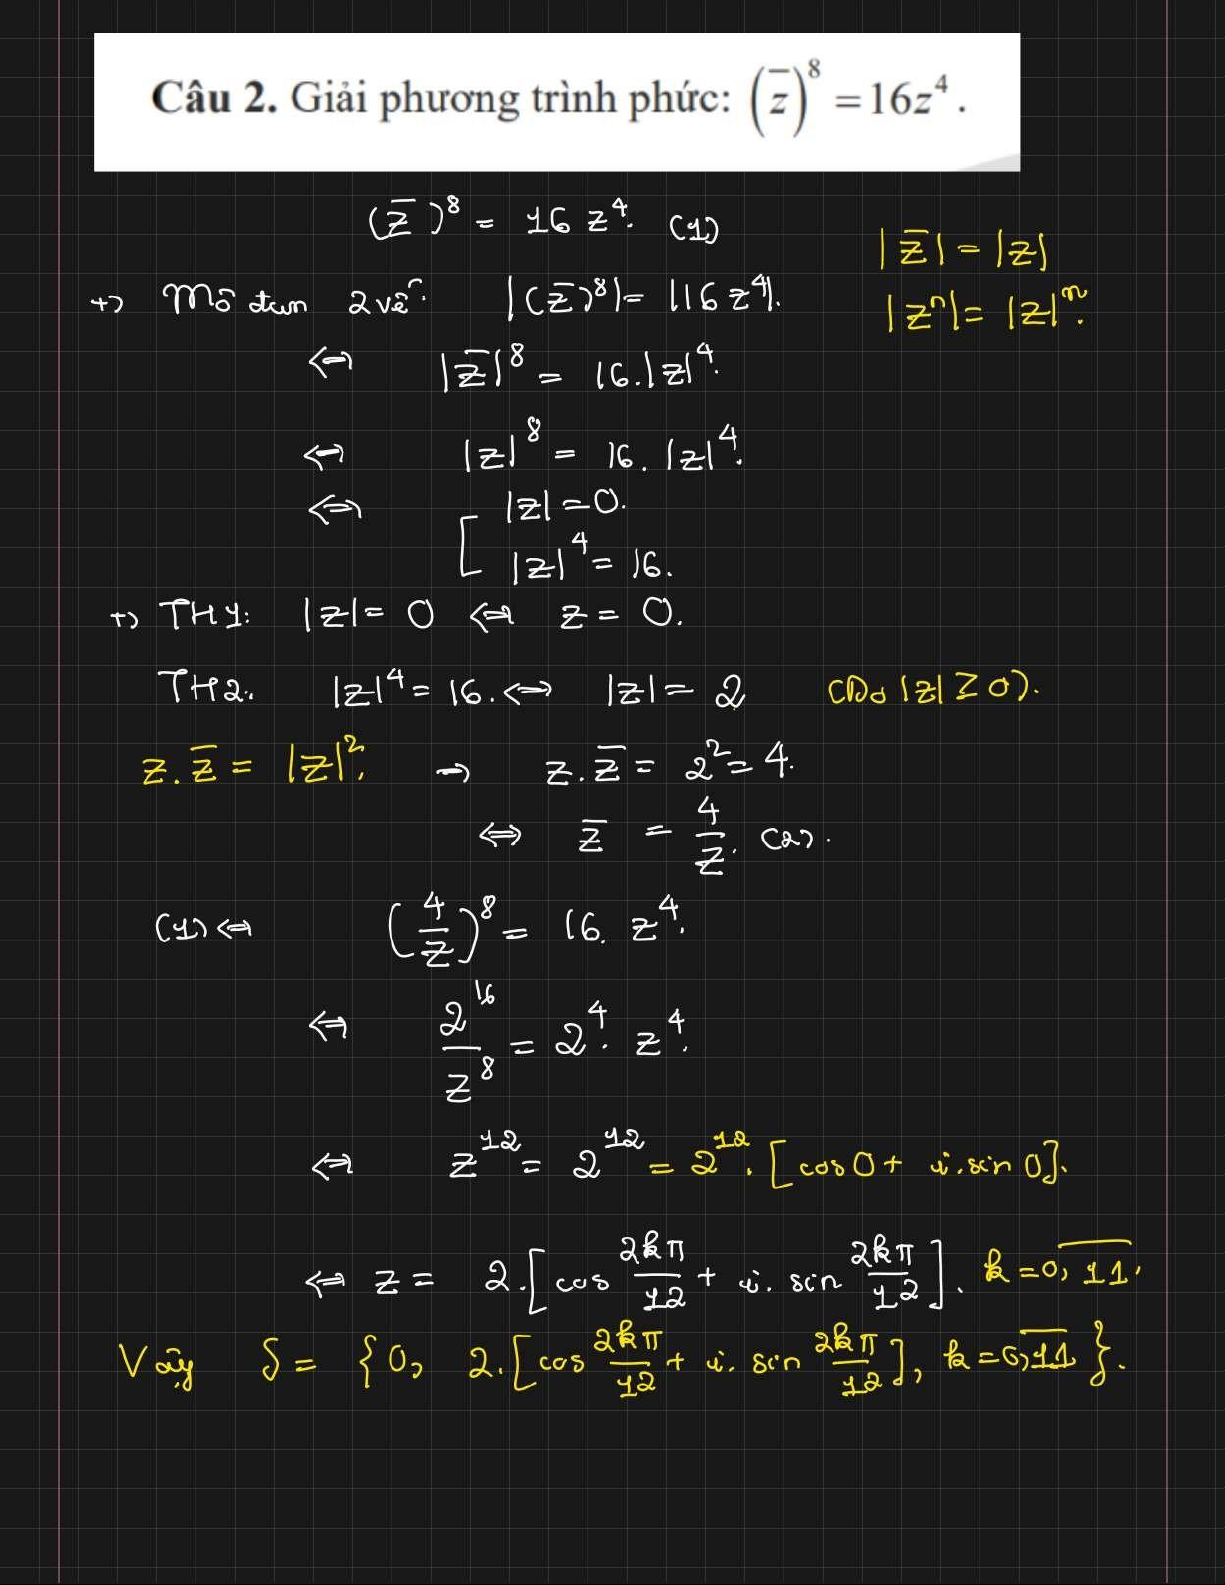 Câu 2. Giải phương trình phức: (z̄)⁸ = 16z⁴.
(z̄)⁸ = 16 z⁴. (1)
|z̄| = |z|
+) Mô đun 2 vế: |(z̄)⁸| = |16 z⁴|.
|zⁿ| = |z|ⁿ.
⇔ |z̄|⁸ = 16.|z|⁴.
⇔ |z|⁸ = 16. |z|⁴.
⇔ [ |z| = 0.
|z|⁴ = 16.
+) TH1: |z| = 0 ⇔ z = 0.
TH2: |z|⁴ = 16. ⇔ |z| = 2 (Do |z| ≥ 0).
z.z̄ = |z|². → z.z̄ = 2² = 4.
⇔ z̄ = 4/z. (2).
(1) ⇔ (4/z)⁸ = 16. z⁴.
⇔ 2¹⁶/z⁸ = 2⁴. z⁴.
⇔ z¹² = 2¹² = 2¹². [cos 0 + i. sin 0].
⇔ z = 2.[cos 2kπ/12 + i. sin 2kπ/12]. k = 0, 1̅1̅.
Vậy S = {0, 2.[cos 2kπ/12 + i. sin 2kπ/12], k = 0, 1̅1̅}.